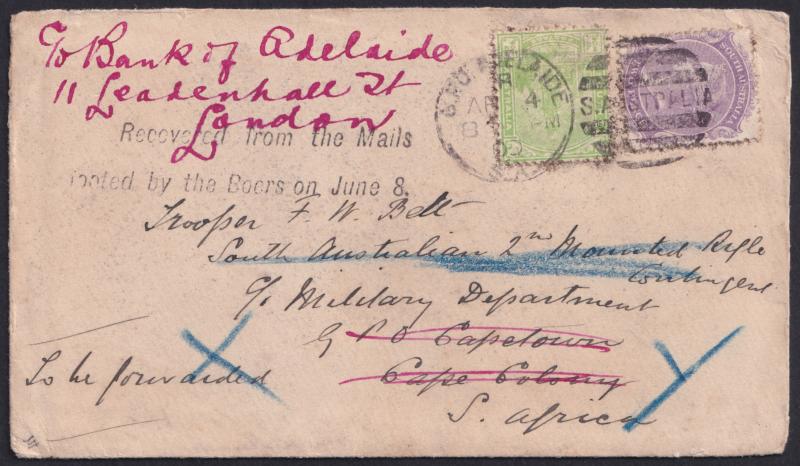 To Bank of Adelaide
11 Leadenhall St
London
G.P.O. ADELAIDE
AP 4
8 PM
S.A.
SOUTH AUSTRALIA
Recovered from the Mails
looted by the Boers on June 8.
Trooper F. W. Bett
South Australian 2nd Mounted Rifle
Contingent
c/o Military Department
G P O Capetown
Cape Colony
To be forwarded
S. Africa